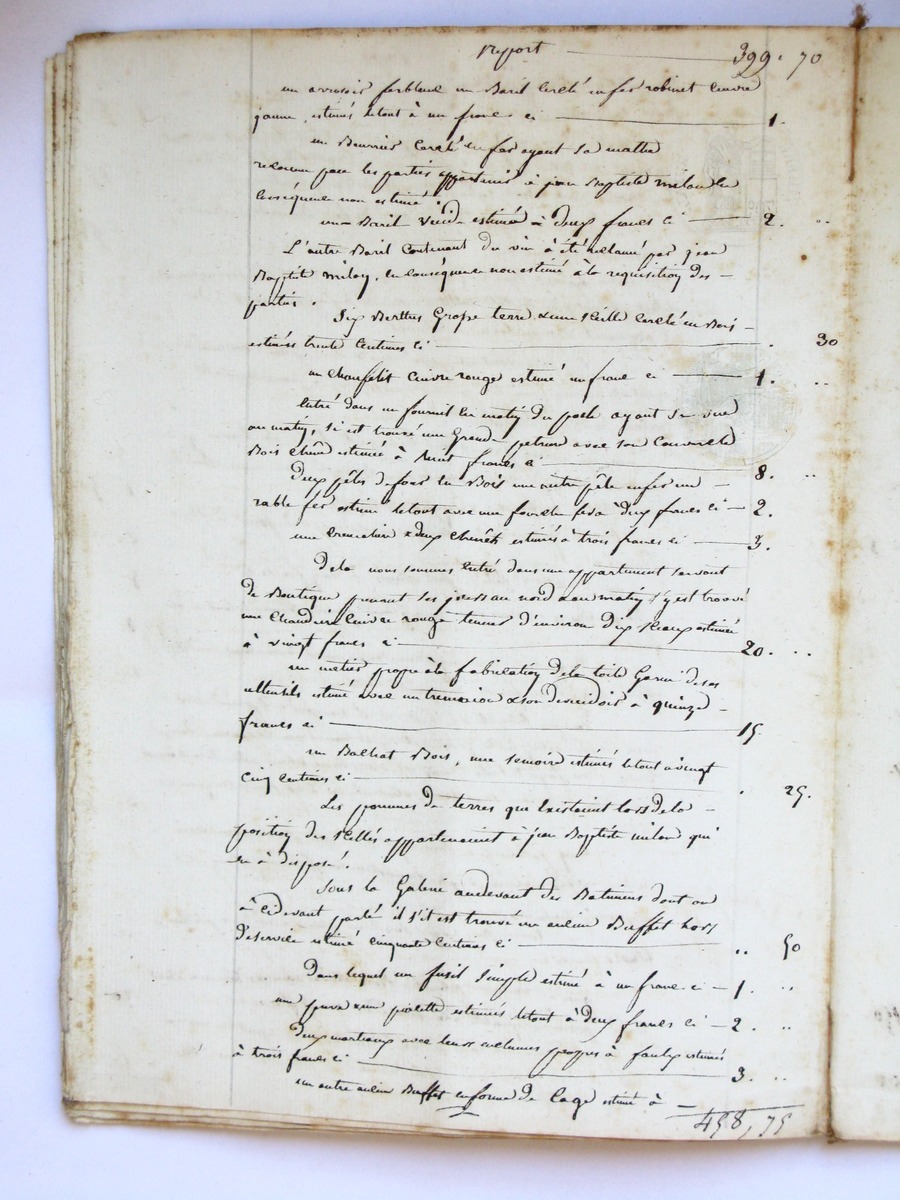 Report 399. 70
un arrosoir ferblanc un Baril Cerclé en fer robinet Cuivre
jaune, estimés letout à un franc ci 1.
un Beurrier Cerclé en fer ayant sa
reconnu par les parties appartenir à jean Baptiste milan en
Conséquence non estimé.
un Baril Vuide estimé à deux francs ci 2. ..
L'autre Baril Contenant du vin à été réclamé par jean
Baptiste milan, en Conséquence non estimé à la requisition des
parties.
Six Berthes Grosse terre & une Seille Cerclé en Bois
estimés trente Centimes ci . 30
un Chaufelit Cuivre rouge estimé un franc ci 1. ..
Entré dans un fournil en matin du poele ayant sa vue
au matin, si est trouvé une Grande petriere avec son Couvercle
Bois Chêne estimée à huit francs ci 8. ..
Deux pêles de four en Bois une autre pêle en fer un
rable fer estimé letout avec une à deux francs ci 2.
une & deux Chenêts estimés à trois francs ci 3.
De la nous sommes Entré dans un appartement servant
de Boutique prenant ses jours au nord & au matin s'y est trouvé
une Chaudiere Cuivre rouge tenant d'environ dix Seaux estimée
à vingt francs ci 20. ..
un metier propre à la fabrication de la toile Garni de ses
ustensils estimé avec un & son devidoir à quinze
francs ci 15
un Bois, une Semoire estimés letout à vingt
Cinq Centimes ci . 25.
Les pommes de terres qui Existoient lors de la
position des Scellés appartenaient à jean Baptiste milan qui
en à disposé.
Sous la Galerie audevant des Batimens dont on
à Cidevant parlé il s'it est trouvé un ancien Buffet hors
de service estimé cinquante Centimes ci .. 50
Dans lequel un fusil Simple estimé à un franc ci 1. ..
une & une piolette estimées letout à deux francs ci 2. ..
Deux marteaux avec leurs enclumes propres à faulx estimés
à trois francs ci 3. ..
un autre ancien Buffet en forme de Cage estimé à
458, 75